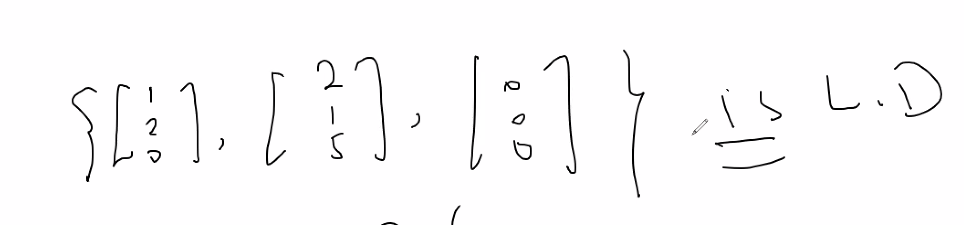 { [1 2 0], [2 1 5], [0 0 0] } is L.D